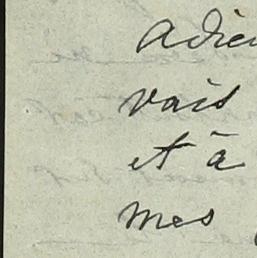 Adieu
vais
et à
mes